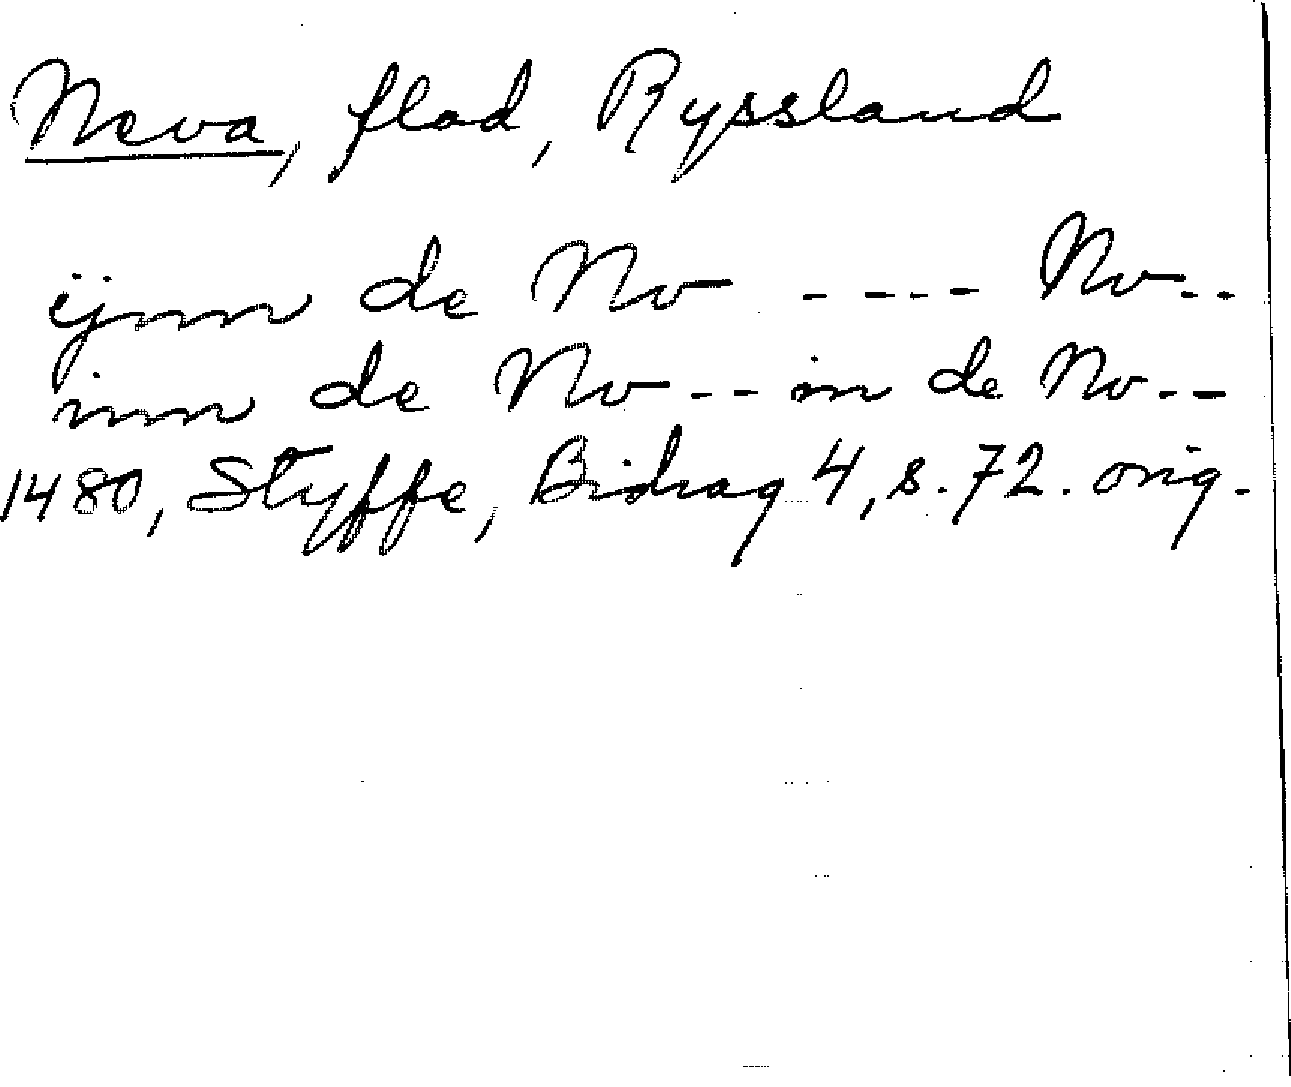 Neva, flod, Ryssland
ijnn de Nv ---- Nv--
inn de Nv -- in de Nv--
1480, Styffe, Bidrag 4, s. 72. orig.